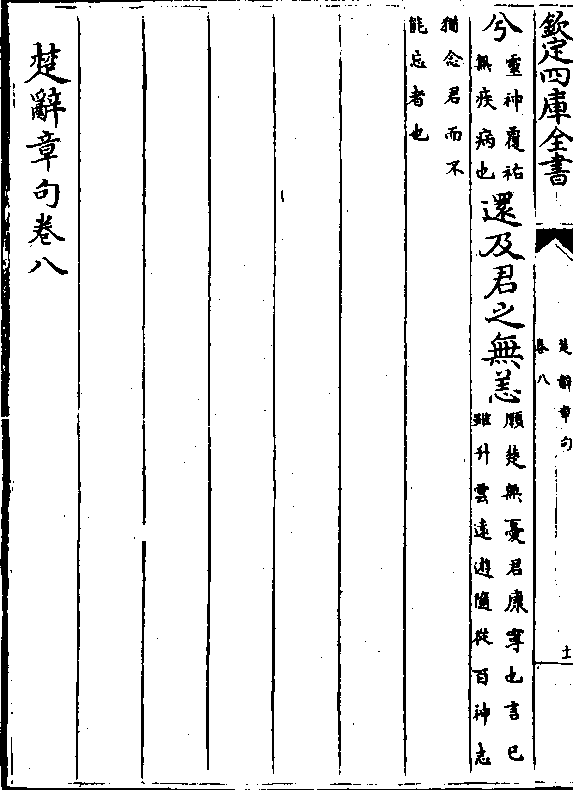 欽定四庫全書
楚辭章句
卷八
十一
兮
靈神覆祐
無疾病也
還及君之無恙
願楚無憂君康寧也言已
雖升雲遠遊隨從百神志
猶念君而不
能忘者也
楚辭章句卷八